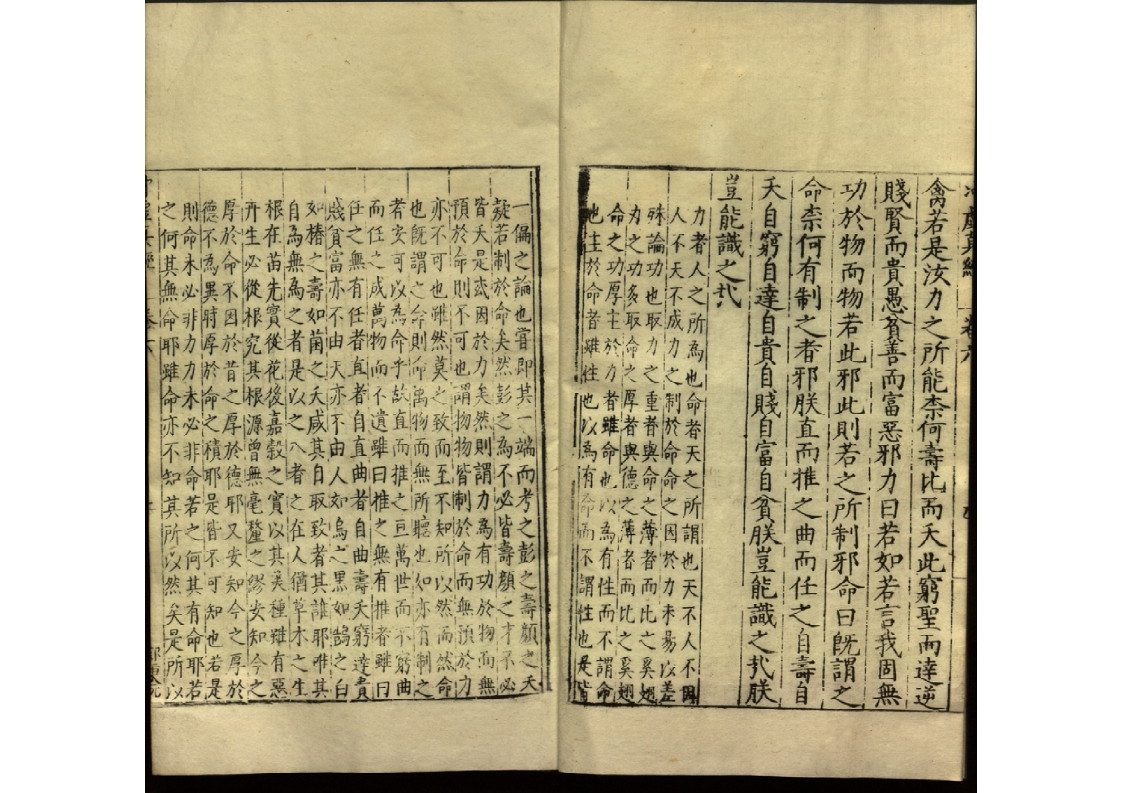 冲虛真經 卷六
禽若是汝力之所能柰何壽比而夭此窮聖而達逆
賤賢而貴愚貧善而富惡邪力曰若如若言我固無
功於物而物若此邪此則若之所制邪命曰旣謂之
命柰何有制之者邪朕直而推之曲而任之自壽自
夭自窮自達自貴自賤自富自貧朕豈能識之㢤朕
豈能識之㢤
力者人之所為也命者天之所謂也天不人不因
人不天不成力之制於命命之因於力未昜以差
殊論功也取力之重者與命之薄者而比之奚翅
力之功多取命之厚者與德之薄者而比之奚翅
命之功厚主於力者雖命也以為有性而不謂命
也主於命者雖性也以為有命而不謂性也是皆
一偏之論也甞即其一端而考之彭之壽顏之夭
疑若制於命矣然彭之為不必皆壽顏之才不必
皆夭是或因於力矣然則謂力為有功於物而無
預於命則不可也謂物物皆制於命而無預於力
亦不可也雖然莫之致而至不知所以然而然命
也旣謂之命則命萬物而無所聽也如亦有制之
者安可以為命乎故直而推之亘萬世而不窮曲
而任之成萬物而不遺雖曰推之無有推者雖曰
任之無有任者直者自直曲者自曲壽夭窮達貴
賤貧富亦不由天亦不由人如烏之黑如鵠之白
如椿之壽如菌之夭咸其自取致者其誰耶唯其
自為無為之者是以之八者之在人猶草木之生
根在苗先實從花後嘉穀之實以其美種雖有惡
卉生必從根究其根源曾無毫釐之繆安知今之
厚於命不因於昔之厚於德邪又安知今之厚於
德不為異時厚於命之積耶是皆不可知也若是
則命未必非力力未必非命若之何其有命耶若
之何其無命耶雖命亦不知其所以然矣是所以